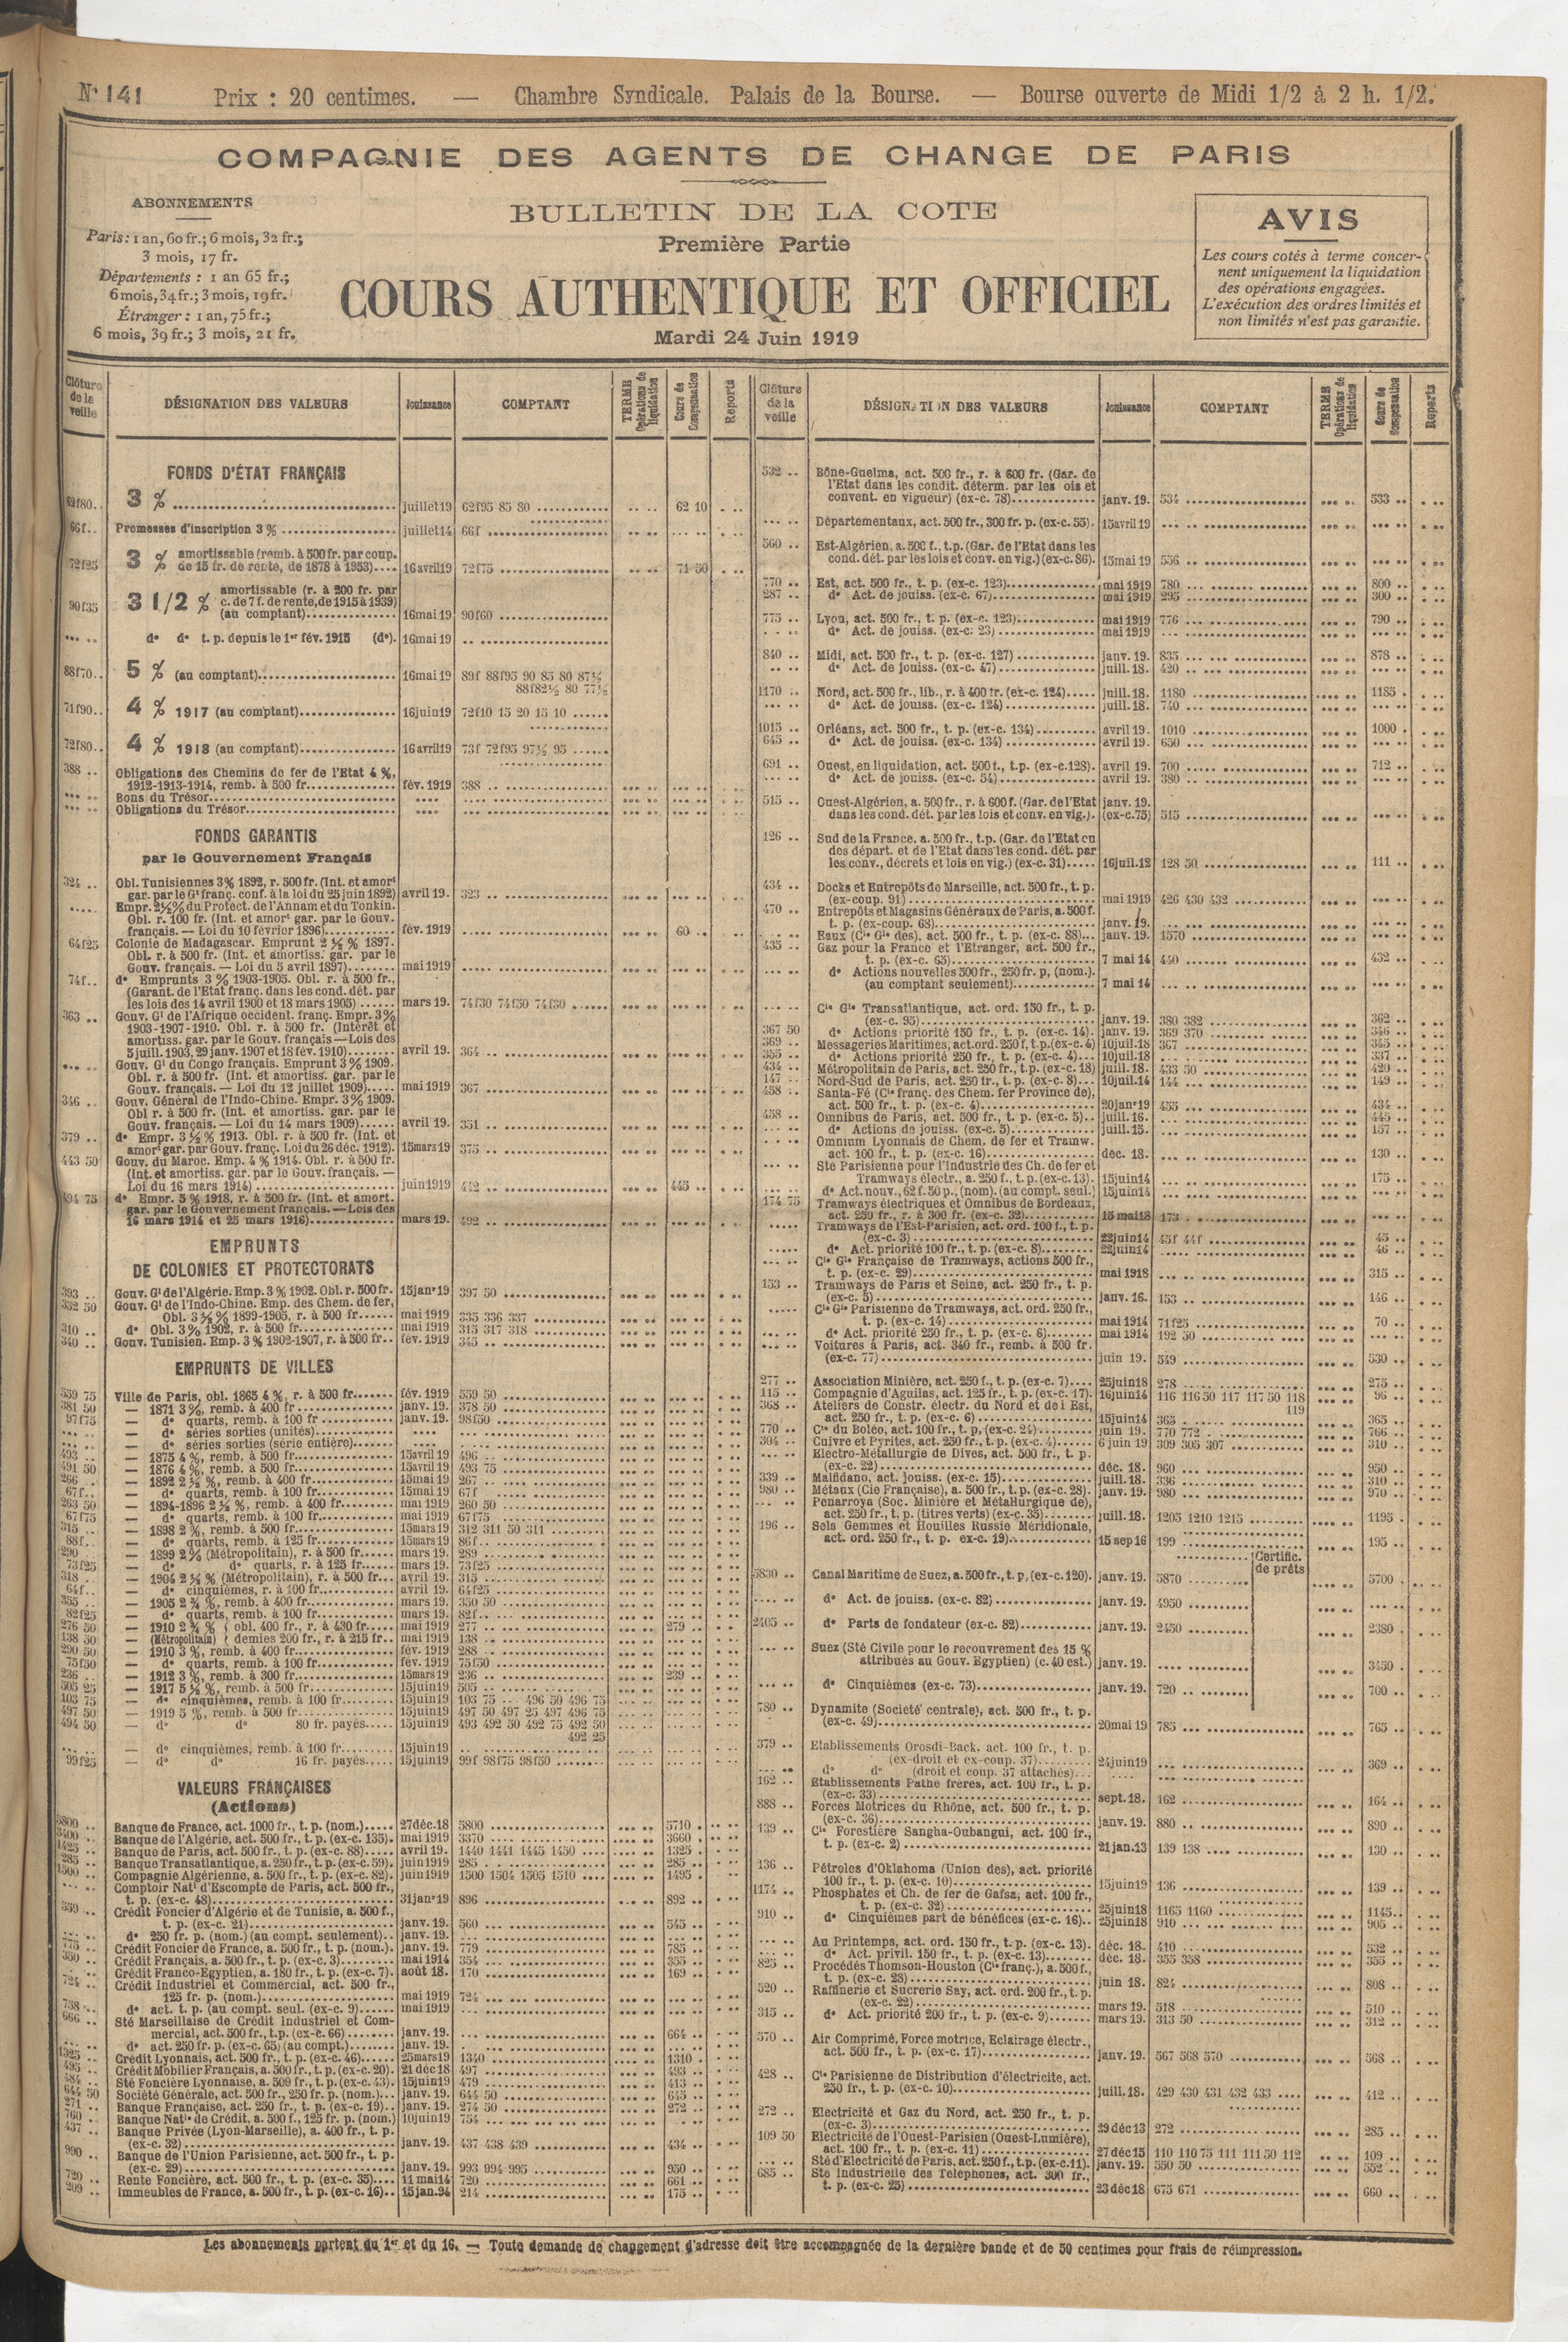 N° 141 Prix : 20 centimes. — Chambre Syndicale. Palais de la Bourse. — Bourse ouverte de Midi 1/2 à 2 h. 1/2.
COMPAGNIE DES AGENTS DE CHANGE DE PARIS
ABONNEMENTS
Paris: 1 an, 60 fr.; 6 mois, 32 fr.;
3 mois, 17 fr.
Départements : 1 an 65 fr.;
6 mois, 34 fr.; 3 mois, 19 fr.
Étranger : 1 an, 75 fr.;
6 mois, 39 fr.; 3 mois, 21 fr.
BULLETIN DE LA COTE
Première Partie
COURS AUTHENTIQUE ET OFFICIEL
Mardi 24 Juin 1919
AVIS
Les cours cotés à terme concer-
nent uniquement la liquidation
des opérations engagées.
L'exécution des ordres limités et
non limités n'est pas garantie.
Clôture de la veille DÉSIGNATION DES VALEURS Jouissance COMPTANT TERME Opérations de liquidation Cours de Compensation Reports
FONDS D'ÉTAT FRANÇAIS
62f80.. 3 % juillet19 62f95 85 80 62 10
66f.. Promesses d'inscription 3 % juillet14 66f
72f25 3 % amortissable (remb. à 500 fr. par coup.
de 15 fr. de rente, de 1878 à 1953) 16avril19 72f75 71 50
90f35 3 1/2 % amortissable (r. à 200 fr. par
c. de 7 f. de rente, de 1915 à 1939)
(au comptant) 16mai19 90f60
d° d° t. p. depuis le 1er fév. 1915 (d°). 16mai19
88f70.. 5 % (au comptant) 16mai19 89f 88f95 90 85 80 87½
88f82½ 80 77½
71f90.. 4 % 1917 (au comptant) 16juin19 72f10 15 20 15 10
72f80.. 4 % 1918 (au comptant) 16avril19 73f 72f95 97½ 95
388 .. Obligations des Chemins de fer de l'Etat 4 %,
1912-1913-1914, remb. à 500 fr. fév. 1919 388
Bons du Trésor
Obligations du Trésor
FONDS GARANTIS
par le Gouvernement Français
324 .. Obl. Tunisiennes 3% 1892, r. 500 fr. (Int. et amort
gar. par le Gt franç. conf. à la loi du 25 juin 1892) avril 19. 323
Empr. 2½% du Protect. de l'Annam et du Tonkin.
Obl. r. 100 fr. (Int. et amort gar. par le Gouv.
français. — Loi du 10 février 1896) fév. 1919 60
64f25 Colonie de Madagascar. Emprunt 2 ½ % 1897.
Obl. r. à 500 fr. (Int. et amortiss. gar. par le
Gouv. français. — Loi du 5 avril 1897) mai 1919
74f.. d° Emprunts 3 % 1903-1905. Obl. r. à 500 fr.,
(Garant. de l'Etat franç. dans les cond. dét. par
les lois des 14 avril 1900 et 18 mars 1905) mars 19. 74f30 74f50 74f30
363 .. Gouv. Gl de l'Afrique occident. franç. Empr. 3%
1903-1907-1910. Obl. r. à 500 fr. (Intérêt et
amortiss. gar. par le Gouv. français — Lois des
5 juill. 1903, 29 janv. 1907 et 18 fév. 1910) avril 19. 364
Gouv. Gl du Congo français. Emprunt 3% 1909.
Obl. r. à 500 fr. (Int. et amortiss. gar. par le
Gouv. français. — Loi du 12 juillet 1909) mai 1919 367
346 .. Gouv. Général de l'Indo-Chine. Empr. 3% 1909.
Obl r. à 500 fr. (Int. et amortiss. gar. par le
Gouv. français. — Loi du 14 mars 1909) avril 19. 351
379 .. d° Empr. 3 ½ % 1913. Obl. r. à 500 fr. (Int. et
amort gar. par Gouv. franç. Loi du 26 déc. 1912). 15mars19 375
443 50 Gouv. du Maroc. Emp. 4 % 1914. Obl. r. à 500 fr.
(Int. et amortiss. gar. par le Gouv. français. —
Loi du 16 mars 1914) juin1919 442 445
494 75 d° Empr. 5 % 1918, r. à 500 fr. (Int. et amort.
gar. par le Gouvernement français. — Lois des
16 mars 1914 et 25 mars 1916) mars 19. 492
EMPRUNTS
DE COLONIES ET PROTECTORATS
393 .. Gouv. Gl de l'Algérie. Emp. 3 % 1902. Obl. r. 500 fr. 15janv19 397 50
332 50 Gouv. Gl de l'Indo-Chine. Emp. des Chem. de fer,
Obl. 3½ % 1899-1905, r. à 500 fr. mai 1919 335 336 337
310 .. d° Obl. 3% 1902, r. à 500 fr. mai 1919 315 317 318
340 .. Gouv. Tunisien. Emp. 3 % 1902-1907, r. à 500 fr. fév. 1919 345
EMPRUNTS DE VILLES
559 75 Ville de Paris, obl. 1865 4 %, r. à 500 fr. fév. 1919 559 50
381 50 — 1871 3 %, remb. à 400 fr janv. 19. 378 50
97f75 — d° quarts, remb. à 100 fr janv. 19. 98f50
— d° séries sorties (unités)
— d° séries sorties (série entière)
493 .. — 1875 4 %, remb. à 500 fr. 15avril19 496
491 50 — 1876 4 %, remb. à 500 fr. 15avril19 493 75
266 .. — 1892 2 ½ %, remb. à 400 fr. 15mai19 267
67f.. — d° quarts, remb. à 100 fr. 15mai19 67f
263 50 — 1894-1896 2 ½ %, remb. à 400 fr. mai 1919 260 50
67f75 — d° quarts, remb. à 100 fr. mai 1919 67f75
315 .. — 1898 2 %, remb. à 500 fr. 15mars19 312 311 50 311
88f.. — d° quarts, remb. à 125 fr. 15mars19 86f
290 .. — 1899 2 % (Métropolitain), r. à 500 fr. mars 19. 289
73f25 — d° d° quarts, r. à 125 fr. mars 19. 73f25
318 .. — 1904 2 ½ % (Métropolitain), r. à 500 fr. avril 19. 315
64f.. — d° cinquièmes, r. à 100 fr. avril 19. 64f25
355 .. — 1905 2 ¾ %, remb. à 400 fr. mars 19. 350 50
82f25 — d° quarts, remb. à 100 fr. mars 19. 82f
276 50 — 1910 2 ¾ % { obl. 400 fr., r. à 430 fr. mai 1919 277 279
138 50 — (Métropolitain) { demies 200 fr., r. à 215 fr. mai 1919 138
290 50 — 1910 3 %, remb. à 400 fr. fév. 1919 288
75f50 — d° quarts, remb. à 100 fr. fév. 1919 75f50
236 .. — 1912 3 %, remb. à 300 fr. 15mars19 236 239
505 25 — 1917 5 ½ %, remb. à 500 fr. 15juin19 505
103 75 — d° cinquièmes, remb. à 100 fr. 15juin19 103 75
497 50 — 1919 5 %, remb. à 500 fr. 15juin19 497 50 497 25 497 496 75
496 50 496 75
494 50 — d° d° 80 fr. payés 15juin19 493 492 50 492 75 492 50
492 25
— d° cinquièmes, remb. à 100 fr. 15juin19
99f25 — d° d° 16 fr. payés 15juin19 99f 98f75 98f50
VALEURS FRANÇAISES
(Actions)
5800 .. Banque de France, act. 1000 fr., t. p. (nom.) 27déc.18 5800 5710
3400 .. Banque de l'Algérie, act. 500 fr., t. p. (ex-c. 135). mai 1919 3370 3660
1425 .. Banque de Paris, act. 500 fr., t. p. (ex-c. 88) avril 19. 1440 1441 1445 1450 1325
285 .. Banque Transatlantique, a. 250 fr., t. p. (ex-c. 59). juin1919 285 285
1500 .. Compagnie Algérienne, a. 500 fr., t. p. (ex-c. 82). juin1919 1500 1504 1505 1510 1495
Comptoir Natl d'Escompte de Paris, act. 500 fr.,
t. p. (ex-c. 48) 31janv19 896 892
559 .. Crédit Foncier d'Algérie et de Tunisie, a. 500 f.,
t. p. (ex-c. 21) janv. 19. 560 545
d° 250 fr. p. (nom.) (au compt. seulement) janv. 19.
775 .. Crédit Foncier de France, a. 500 fr., t. p. (nom.). janv. 19. 779 785
350 .. Crédit Français, a. 500 fr., t. p. (ex-c. 3) mai 1914 354 355
Crédit Franco-Egyptien, a. 180 fr., t. p. (ex-c. 7). août 18. 170 169
724 .. Crédit Industriel et Commercial, act. 500 fr.,
125 fr. p. (nom.) mai 1919 724
738 .. d° act. t. p. (au compt. seul. (ex-c. 9) mai 1919
666 .. Sté Marseillaise de Crédit Industriel et Com-
mercial, act. 500 fr., t.p. (ex-c. 66) janv. 19. 664
d° act. 250 fr. p. (ex-c. 65) (au compt.) janv. 19.
1325 .. Crédit Lyonnais, act. 500 fr., t. p. (ex-c. 46) 25mars19 1340 1310
495 .. Crédit Mobilier Français, a. 500 fr., t. p. (ex-c. 20). 21 déc 18 497 493
484 .. Sté Foncière Lyonnaise, a. 500 fr., t. p. (ex-c. 43). 15juin19 479 413
644 50 Société Générale, act. 500 fr., 250 fr. p. (nom.) janv. 19. 644 50 645
271 .. Banque Française, act. 250 fr., t. p. (ex-c. 19) janv. 19. 274 50 272
760 .. Banque Natle de Crédit, a. 500 f., 125 fr. p. (nom.) 10juin19 754
437 .. Banque Privée (Lyon-Marseille), a. 400 fr., t. p.
(ex-c. 32) janv. 19. 437 438 439 434
990 .. Banque de l'Union Parisienne, act. 500 fr., t. p.
(ex-c. 29) janv. 19. 993 994 995 950
720 .. Rente Foncière, act. 500 fr., t. p. (ex-c. 35) 11 mai14 720 661
209 .. Immeubles de France, a. 500 fr., t. p. (ex-c. 16) 15 jan.94 214 175
Clôture de la veille DÉSIGNATION DES VALEURS Jouissance COMPTANT TERME Opérations de liquidation Cours de Compensation Reports
532 .. Bône-Guelma, act. 500 fr., r. à 600 fr. (Gar. de
l'Etat dans les condit. déterm. par les lois et
convent. en vigueur) (ex-c. 78) janv. 19. 534 533
Départementaux, act. 500 fr., 300 fr. p. (ex-c. 55). 15avril19
560 .. Est-Algérien, a. 500 f., t.p. (Gar. de l'Etat dans les
cond. dét. par les lois et conv. en vig.) (ex-c. 86). 15mai 19 556
770 .. Est, act. 500 fr., t. p. (ex-c. 123) mai 1919 780 800
287 .. d° Act. de jouiss. (ex-c. 67) mai 1919 295 300
775 .. Lyon, act. 500 fr., t. p. (ex-c. 123) mai 1919 776 790
d° Act. de jouiss. (ex-c. 23) mai 1919
840 .. Midi, act. 500 fr., t. p. (ex-c. 127) janv. 19. 835 878
d° Act. de jouiss. (ex-c. 47) juill. 18. 420
1170 .. Nord, act. 500 fr., lib., r. à 400 fr. (ex-c. 124) juill. 18. 1180 1185
d° Act. de jouiss. (ex-c. 124) juill. 18. 740
1015 .. Orléans, act. 500 fr., t. p. (ex-c. 134) avril 19. 1010 1000
645 .. d° Act. de jouiss. (ex-c. 134) avril 19. 650
691 .. Ouest, en liquidation, act. 500 f., t.p. (ex-c. 128). avril 19. 700 712
d° Act. de jouiss. (ex-c. 54) avril 19. 380
515 .. Ouest-Algérien, a. 500 fr., r. à 600 f. (Gar. de l'Etat janv. 19.
dans les cond. dét. par les lois et conv. en vig.). (ex-c.75) 515
126 .. Sud de la France, a. 500 fr., t.p. (Gar. de l'Etat ou
des départ. et de l'Etat dans les cond. dét. par
les conv., décrets et lois en vig.) (ex-c. 31) 16juil.12 128 50 111
434 .. Docks et Entrepôts de Marseille, act. 500 fr., t. p.
(ex-coup. 91) mai 1919 426 430 432
470 .. Entrepôts et Magasins Généraux de Paris, a. 500 f.
t. p. (ex-coup. 68) janv. 19.
Eaux (Cie Gle des), act. 500 fr., t. p. (ex-c. 88) janv. 19. 1570
435 .. Gaz pour la France et l'Etranger, act. 500 fr.,
t. p. (ex-c. 65) 7 mai 14 440 432
d° Actions nouvelles 500 fr., 250 fr. p, (nom.).
(au comptant seulement) 7 mai 14
Cie Gle Transatlantique, act. ord. 150 fr., t. p.
(ex-c. 95) janv. 19. 380 382 362
367 50 d° Actions priorité 150 fr., t. p. (ex-c. 14). janv. 19. 369 370 346
369 .. Messageries Maritimes, act. ord. 250 f, t.p. (ex-c. 4) 10juil.18 367 345
355 .. d° Actions priorité 250 fr., t. p. (ex-c. 4) 10juil.18 337
434 .. Métropolitain de Paris, act. 250 fr., t.p. (ex-c. 18) juill. 18. 433 50 420
147 .. Nord-Sud de Paris, act. 250 fr., t. p. (ex-c. 8) 10juil.14 144 149
458 .. Santa-Fé (Cie franç. des Chem. fer Province de),
act. 500 fr., t. p. (ex-c. 4) 20janv19 455 434
458 .. Omnibus de Paris, act. 500 fr., t. p. (ex-c. 5) juill. 16. 445
d° Actions de jouiss. (ex-c. 5) juill. 15. 157
Omnium Lyonnais de Chem. de fer et Tramw.
act. 100 fr., t. p. (ex-c. 16) déc. 18. 130
Sté Parisienne pour l'Industrie des Ch. de fer et
Tramways électr., a. 250 f., t. p. (ex-c. 13). 15juin14 175
d° Act. nouv., 62 f. 50 p., (nom). (au compt. seul.) 15juin14
174 75 Tramways électriques et Omnibus de Bordeaux,
act. 250 fr., r. à 300 fr. (ex-c. 32) 15 mai18 173
Tramways de l'Est-Parisien, act. ord. 100 f., t. p.
(ex-c. 3) 22juin14 45f 44f 45
d° Act. priorité 100 fr., t. p. (ex-c. 8) 22juin14 46
Cie Gle Française de Tramways, actions 500 fr.,
t. p. (ex-c. 29) mai 1918 315
153 .. Tramways de Paris et Seine, act. 250 fr., t. p.
(ex-c. 5) janv. 16. 153 146
Cie Gle Parisienne de Tramways, act. ord. 250 fr.,
t. p. (ex-c. 14) mai 1914 71f25 70
d° Act. priorité 250 fr., t. p. (ex-c. 6) mai 1914 192 50
Voitures à Paris, act. 340 fr., remb. à 500 fr.
(ex-c. 77) juin 19. 549 530
277 .. Association Minière, act. 250 f., t. p. (ex-c. 7) 25juin18 278 275
115 .. Compagnie d'Aguilas, act. 125 fr., t. p. (ex-c. 17). 16juin14 116 116 50 117 117 50 118 96
119
368 .. Ateliers de Constr. électr. du Nord et de l Est,
act. 250 fr., t. p. (ex-c. 6) 15juin14 365 365
770 .. Cie du Boléo, act. 100 fr., t. p, (ex-c. 24) juin 19. 770 772 766
304 .. Cuivre et Pyrites, act. 250 fr., t. p. (ex-c. 4) 6 juin 19 309 305 307 310
Electro-Métallurgie de Dives, act. 500 fr., t. p.
(ex-c. 22) déc. 18. 960 950
339 .. Malfidano, act. jouiss. (ex-c. 15) juill. 18. 336 310
980 .. Métaux (Cie Française), a. 500 fr., t. p. (ex-c. 28). janv. 19. 980 970
Penarroya (Soc. Minière et Métallurgique de),
act. 250 fr., t. p. (titres verts) (ex-c. 35) juill. 18. 1205 1210 1215 1195
196 .. Sels Gemmes et Houilles Russie Méridionale,
act. ord. 250 fr., t. p. ex-c. 19) 15 sep 16 199 195
Certific.
de prêts
5830 .. Canal Maritime de Suez, a. 500 fr., t. p, (ex-c. 120). janv. 19. 5870 5700
d° Act. de jouiss. (ex-c. 82) janv. 19. 4950
2405 .. d° Parts de fondateur (ex-c. 82) janv. 19. 2450 2380
Suez (Sté Civile pour le recouvrement des 15 %
attribués au Gouv. Egyptien) (c. 40 est.) janv. 19. 3450
d° Cinquièmes (ex-c. 73) janv. 19. 720 700
780 .. Dynamite (Société centrale), act. 500 fr., t. p.
(ex-c. 49) 20mai 19 785 765
379 .. Etablissements Orosdi-Back, act. 100 fr., t. p.
(ex-droit et ex-coup. 37) 24juin19 369
d° d° (droit et coup. 37 attachés)
162 .. Etablissements Pathé frères, act. 100 fr., t. p.
(ex-c. 33) sept. 18. 162 164
888 .. Forces Motrices du Rhône, act. 500 fr., t. p.
(ex-c. 36) janv. 19. 880 890
139 .. Cie Forestière Sangha-Oubangui, act. 100 fr.,
t. p. (ex-c. 2) 21 jan.13 139 138 130
136 .. Pétroles d'Oklahoma (Union des), act. priorité
100 fr., t. p. (ex-c. 10) 15juin19 136 139
1174 .. Phosphates et Ch. de fer de Gafsa, act. 100 fr.,
t. p. (ex-c. 32) 25juin18 1165 1160 1145
910 .. d° Cinquièmes part de bénéfices (ex-c. 16) 25juin18 910 905
Au Printemps, act. ord. 150 fr., t. p. (ex-c. 13). déc. 18. 410 532
d° Act. privil. 150 fr., t. p. (ex-c. 13) déc. 18. 355 358 355
825 .. Procédés Thomson-Houston (Cie franç.), a. 500 f.,
t. p. (ex-c. 28) juin 18. 824 808
520 .. Raffinerie et Sucrerie Say, act. ord. 200 fr., t. p.
(ex-c. 22) mars 19. 518 510
315 .. d° Act. priorité 200 fr., t. p. (ex-c. 9) mars 19. 313 50 312
570 .. Air Comprimé, Force motrice, Eclairage électr.,
act. 500 fr., t. p. (ex-c. 17) janv. 19. 567 568 570 568
428 .. Cie Parisienne de Distribution d'électricité, act.
250 fr., t. p. (ex-c. 10) juill. 18. 429 430 431 432 433 412
272 .. Electricité et Gaz du Nord, act. 250 fr., t. p.
(ex-c. 3) 29 déc13 272 285
109 50 Electricité de l'Ouest-Parisien (Ouest-Lumière),
act. 100 fr., t. p. (ex-c. 11) 27 déc15 110 110 75 111 111 50 112 109
Sté d'Electricité de Paris, act. 250 f., t.p. (ex-c. 11). janv. 19. 550 50 552
685 .. Sté Industrielle des Téléphones, act. 300 fr.,
t. p. (ex-c. 25) 23 déc18 675 671 660
Les abonnements partent du 1er et du 16. — Toute demande de changement d'adresse doit être accompagnée de la dernière bande et de 50 centimes pour frais de réimpression.